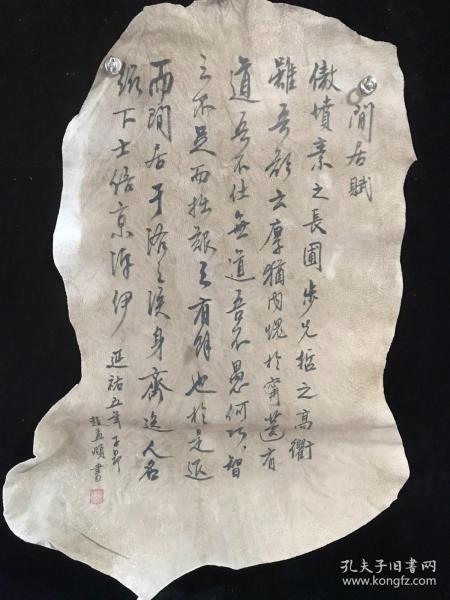 閒居賦
傲墳素之長圃步先哲之高衢
雖吾顏云厚猶內愧於甯蘧有
道吾不仕無道吾不愚何巧智
之不足而拙艱之有餘也於是退
而閒居于洛之涘身齊逸人名
綴下士倍京泝伊
延祐五年子昂
趙孟頫書
孔夫子旧书网
www.kongfz.com